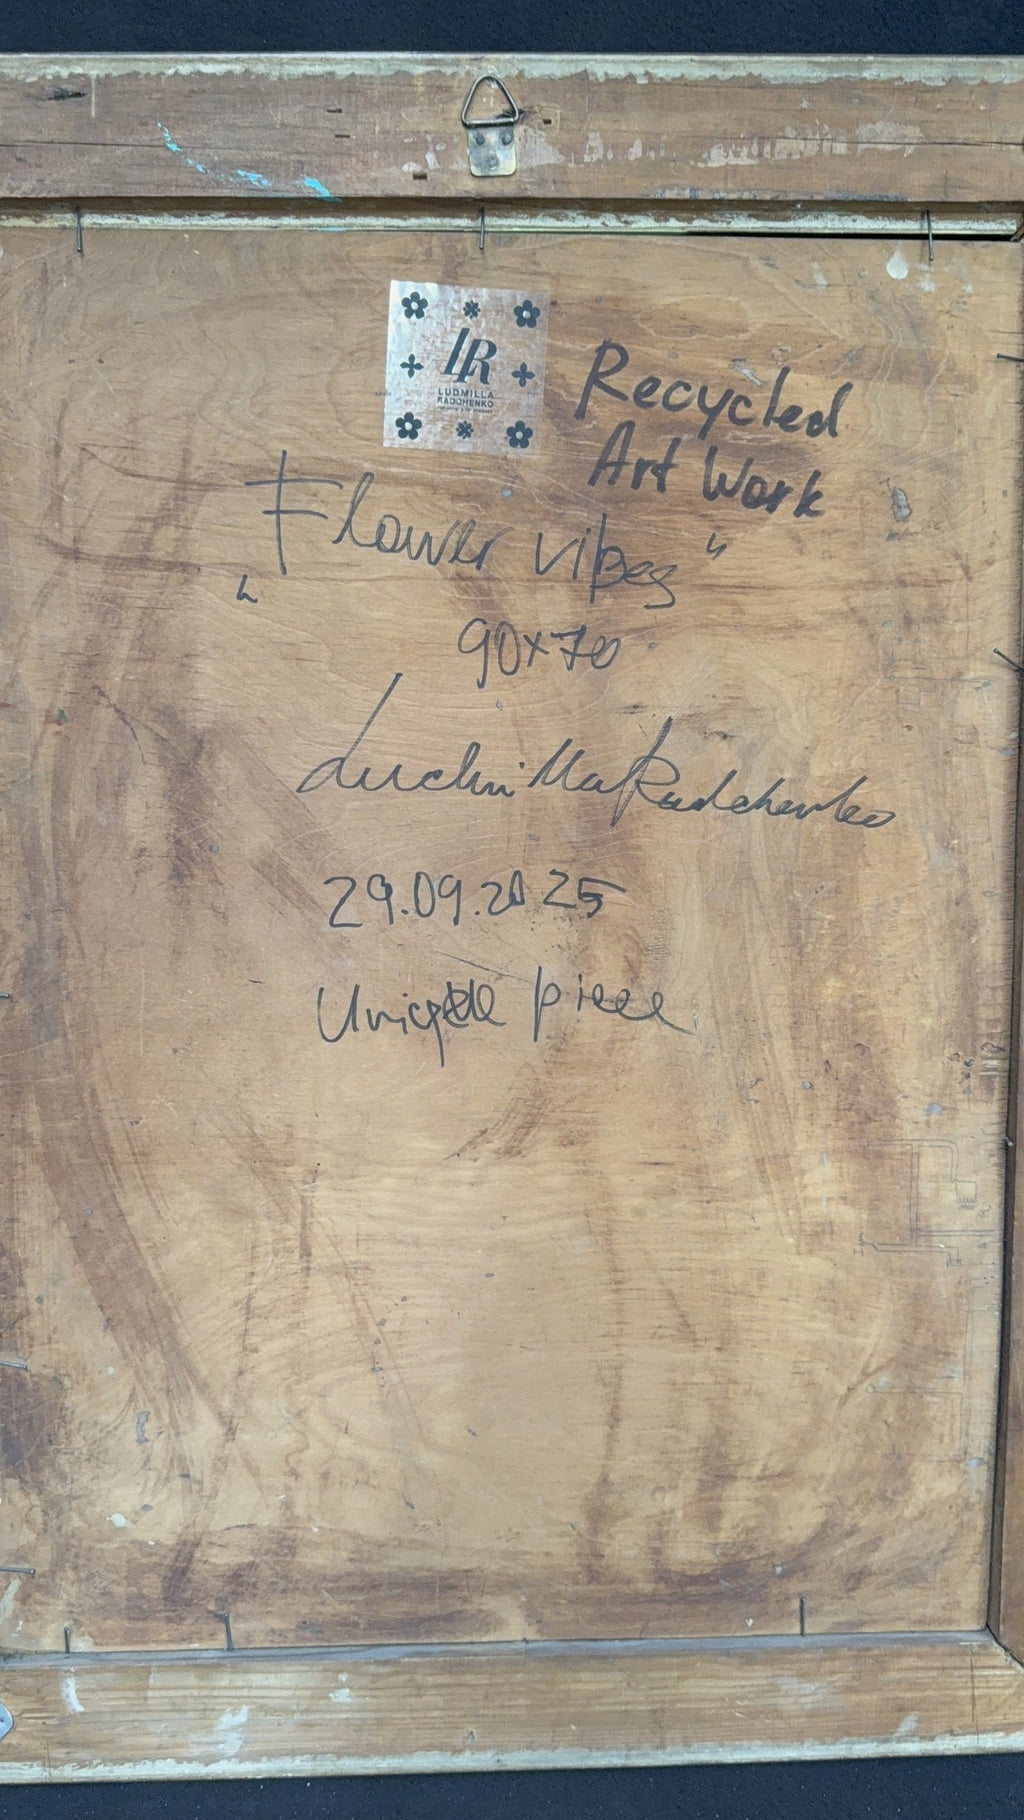 LR
LUDMILLA
RADCHENKO
Recycled
Art Work
„Flower vibes"
90x70
Ludmilla Radchenko
29.09.2025
Unique piece